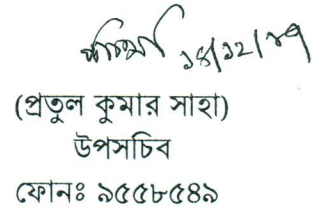 ১৪/১২/১৭
(প্রতুল কুমার সাহা)
উপসচিব
ফোনঃ ৯৫৫৮৫৪৯